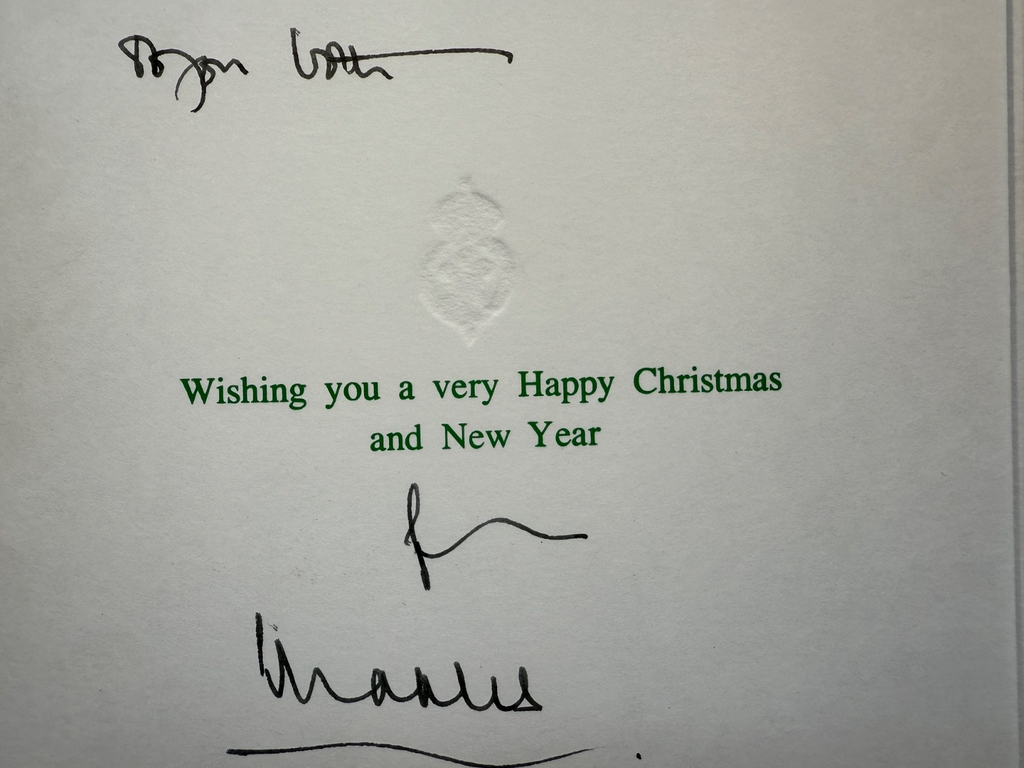 To you both
Wishing you a very Happy Christmas
and New Year
from
Charles